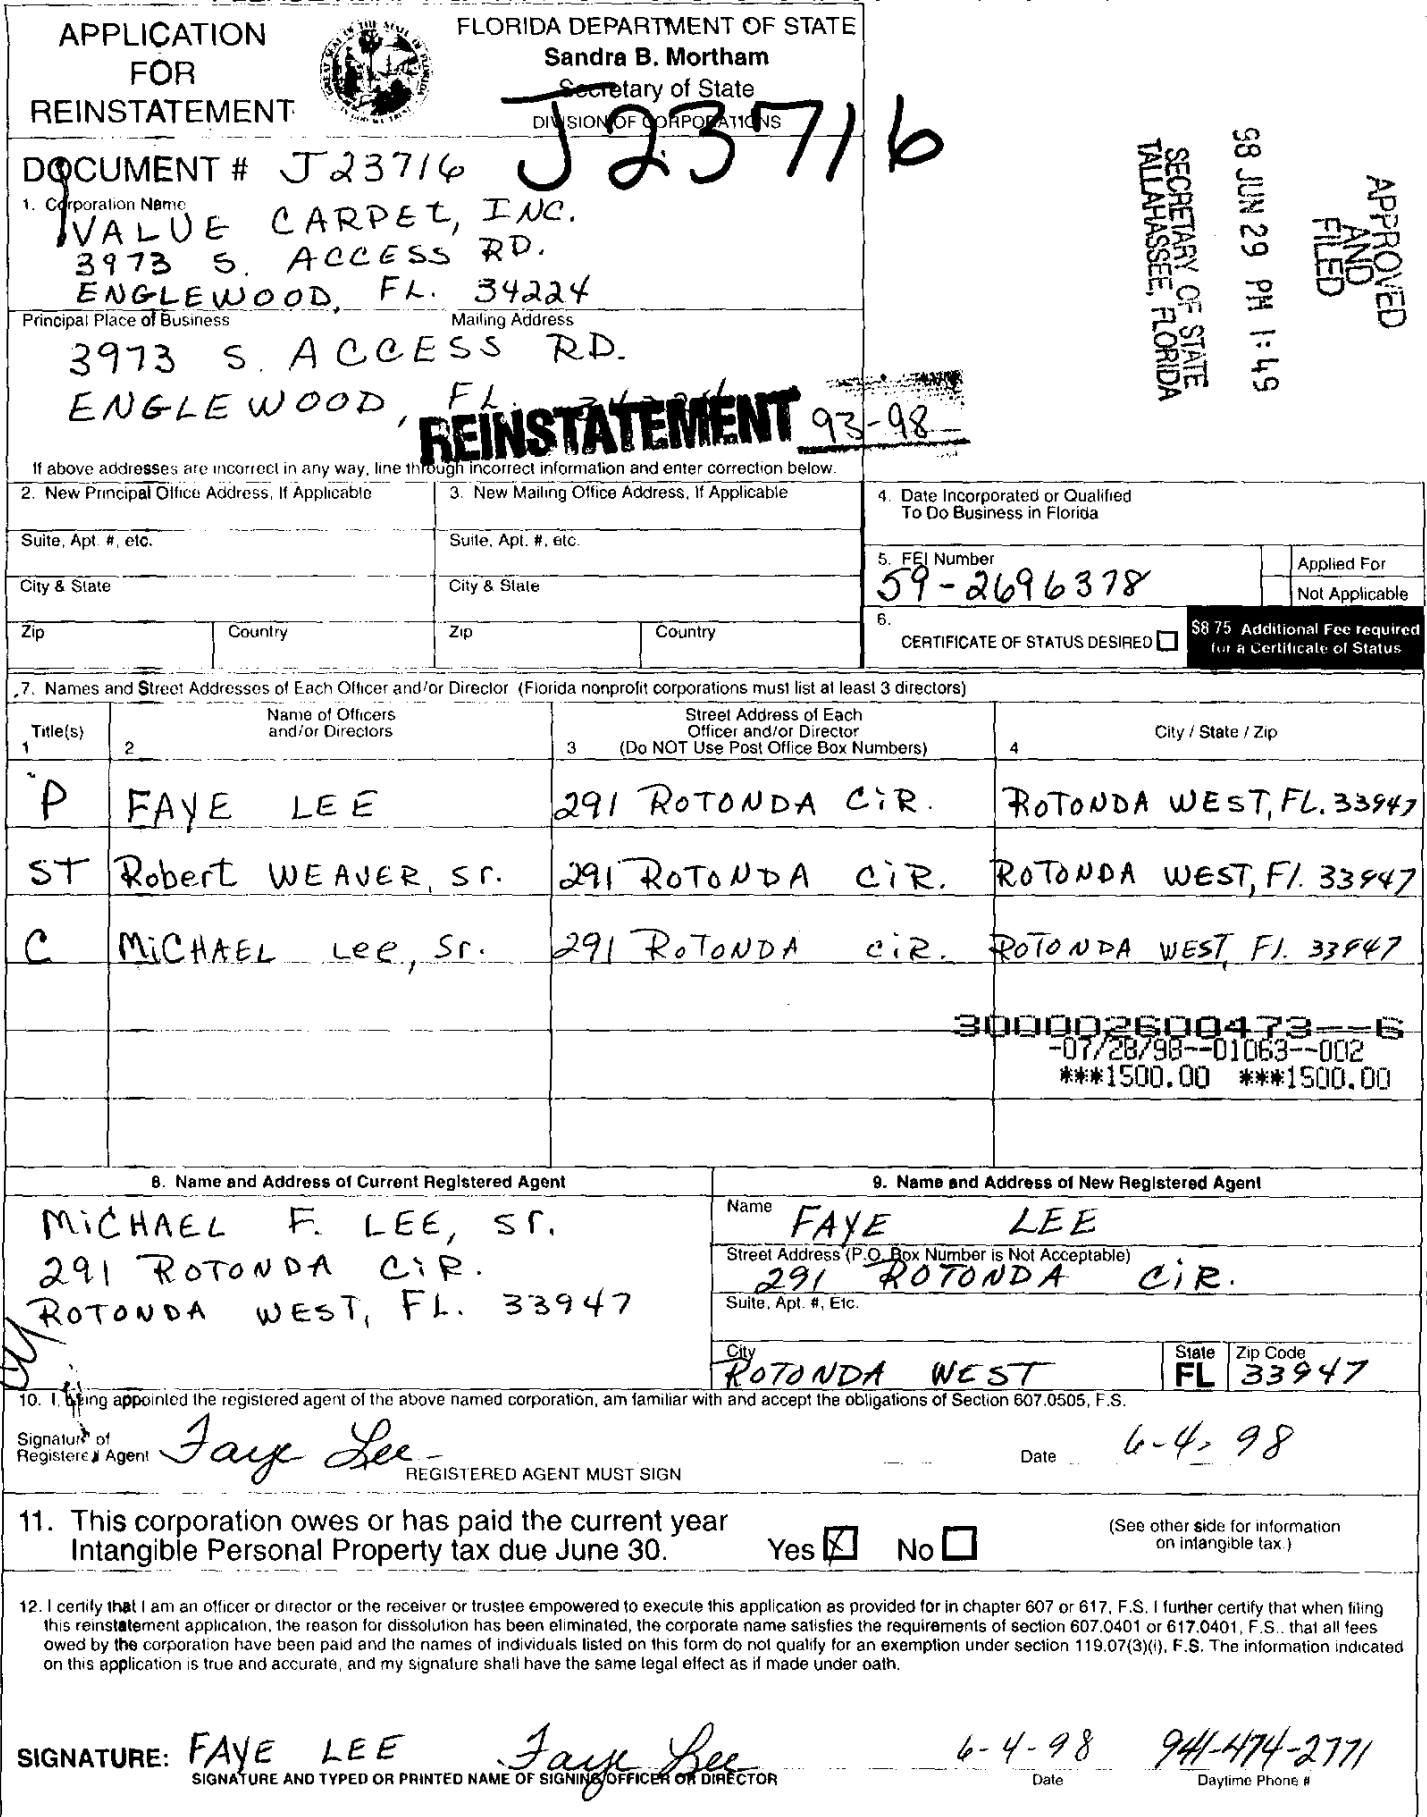 APPLICATION
FOR
REINSTATEMENT
FLORIDA DEPARTMENT OF STATE
Sandra B. Mortham
Secretary of State
DIVISION OF CORPORATIONS
J23716
DOCUMENT # J23716
1. Corporation Name
VALUE CARPET, INC.
3973 S. ACCESS RD.
ENGLEWOOD, FL. 34224
Principal Place of Business Mailing Address
3973 S. ACCESS RD.
ENGLEWOOD, FL.
REINSTATEMENT 93-98
98 JUN 29 PM 1:49
SECRETARY OF STATE
TALLAHASSEE, FLORIDA
APPROVED
AND
FILED
If above addresses are incorrect in any way, line through incorrect information and enter correction below.
2. New Principal Office Address, If Applicable
Suite, Apt. #, etc.
City & State
Zip Country
3. New Mailing Office Address, If Applicable
Suite, Apt. #, etc.
City & State
Zip Country
4. Date Incorporated or Qualified
To Do Business in Florida
5. FEI Number
59-2696378
Applied For
Not Applicable
6.
CERTIFICATE OF STATUS DESIRED
$8.75 Additional Fee required
for a Certificate of Status
7. Names and Street Addresses of Each Officer and/or Director (Florida nonprofit corporations must list at least 3 directors)
Title(s)
1
Name of Officers
and/or Directors
2
Street Address of Each
Officer and/or Director
3 (Do NOT Use Post Office Box Numbers)
City / State / Zip
4
P FAYE LEE 291 ROTONDA CiR. ROTONDA WEST, FL. 33947
ST Robert WEAVER, Sr. 291 ROTONDA CiR. ROTONDA WEST, Fl. 33947
C MiCHAEL Lee, Sr. 291 ROTONDA CiR. ROTONDA WEST, Fl. 33947
300002600473--6
-07/28/98--01063--002
***1500.00 ***1500.00
8. Name and Address of Current Registered Agent
MiCHAEL F. LEE, Sr.
291 ROTONDA CiR.
ROTONDA WEST, FL. 33947
9. Name and Address of New Registered Agent
Name
FAYE LEE
Street Address (P.O. Box Number is Not Acceptable)
291 ROTONDA CiR.
Suite, Apt. #, Etc.
City State Zip Code
ROTONDA WEST FL 33947
10. I, being appointed the registered agent of the above named corporation, am familiar with and accept the obligations of Section 607.0505, F.S.
Signature of
Registered Agent Faye Lee Date 6-4-98
REGISTERED AGENT MUST SIGN
11. This corporation owes or has paid the current year
Intangible Personal Property tax due June 30. Yes X No
(See other side for information
on intangible tax.)
12. I certify that I am an officer or director or the receiver or trustee empowered to execute this application as provided for in chapter 607 or 617, F.S. I further certify that when filing
this reinstatement application, the reason for dissolution has been eliminated, the corporate name satisfies the requirements of section 607.0401 or 617.0401, F.S., that all fees
owed by the corporation have been paid and the names of individuals listed on this form do not qualify for an exemption under section 119.07(3)(i), F.S. The information indicated
on this application is true and accurate, and my signature shall have the same legal effect as if made under oath.
SIGNATURE: FAYE LEE Faye Lee 6-4-98 941-474-2771
SIGNATURE AND TYPED OR PRINTED NAME OF SIGNING OFFICER OR DIRECTOR Date Daytime Phone #